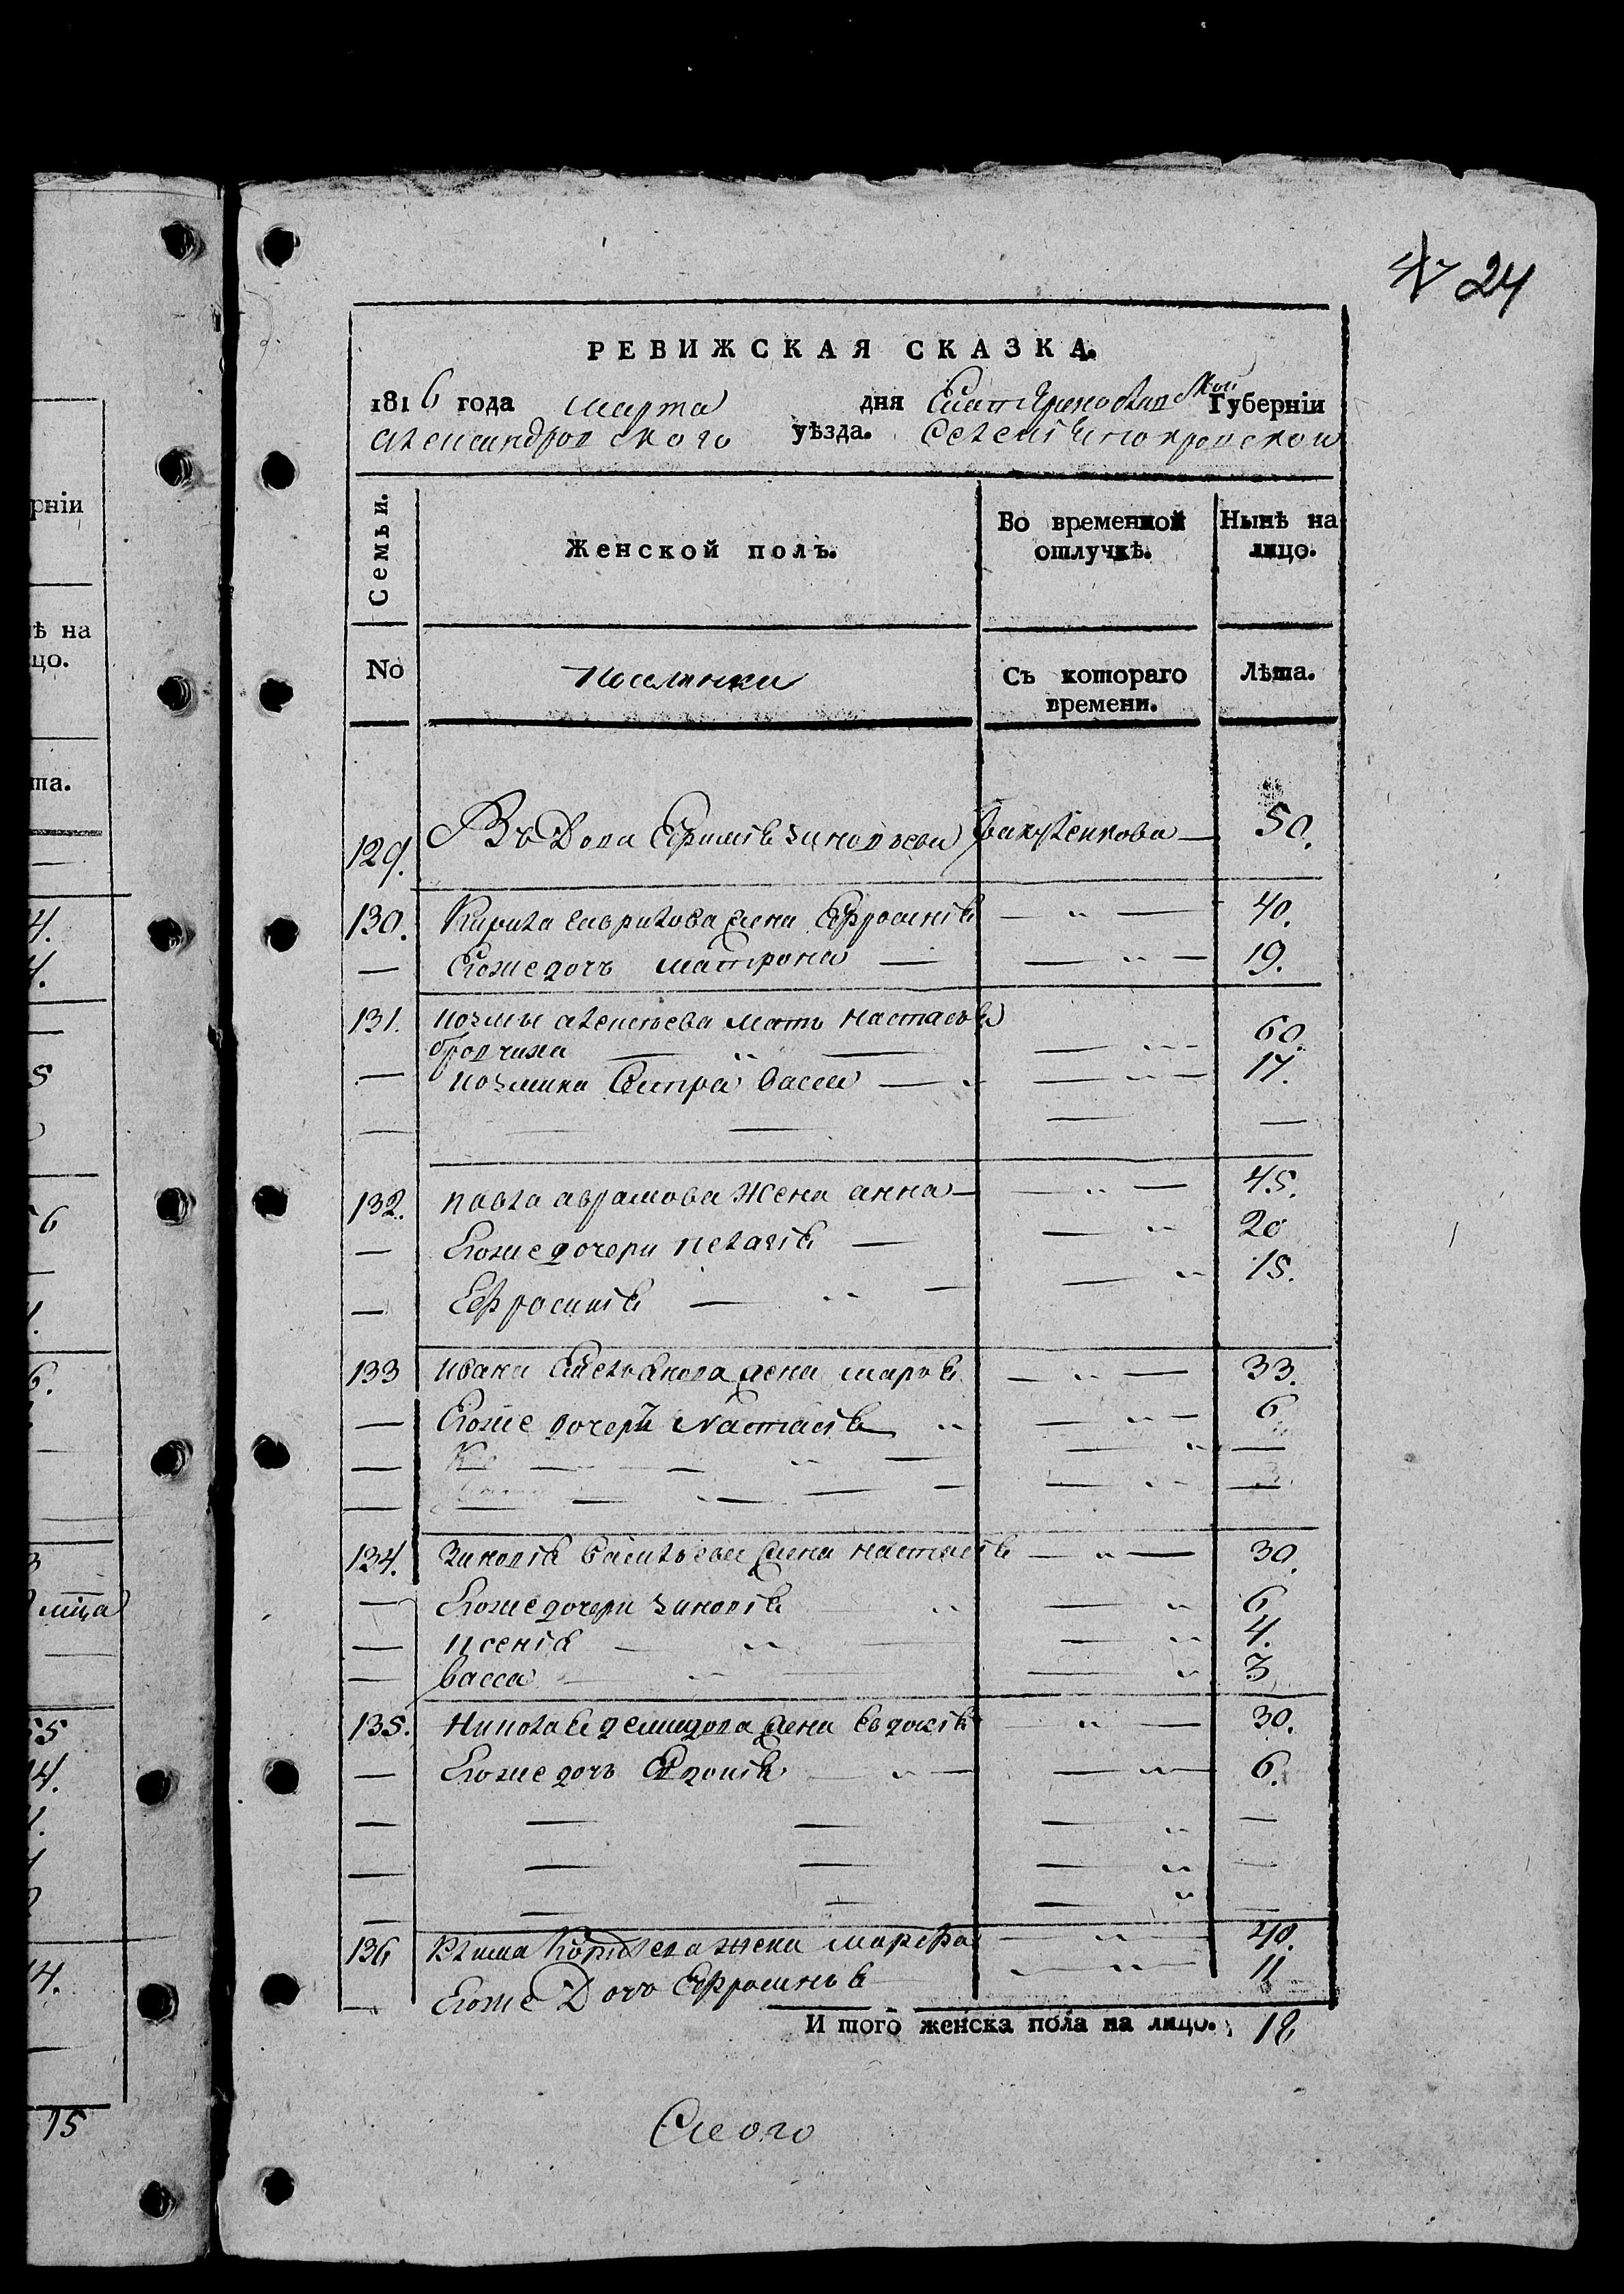 24
РЕВИЖСКАЯ СКАЗКА.
1816 года марта дня Екатеринославской Губерніи
александровского уѣзда. Селенія покровской
Семьи.
Женской полъ.
Во временной отлучкѣ.
Нынѣ на лицо.
No
поселянки
Съ котораго времени.
Лѣта.
129. Въдова Ефимія зиновьева 50.
130. Кирила гаврилова жена Ефросинія 40.
— Егоже дочь матрона — 19.
131. козмы алексѣева мать настасія 60.
— козмина Сестра васса — 17.
132. павла аврамова жена анна — 45.
— Егоже дочери пелагія — 20
— Ефросинія — 15.
133 ивана жена марья 33.
— Егоже дочери Настасія 6
134. зиновія васильева жена настасія — 30.
— Егоже дочери зиновія 6
— ксенія — 4.
— васса — 3
135. николая демидова жена евдокія 30.
— Егоже дочь 6.
136 жена марфа 40.
— Егоже Дочь Ефросинья 11
И того женска пола на лицо. 18
рніи
ѣ на
цо.
та.
4.
4.
5
6
6.
3
55
14.
14.
15